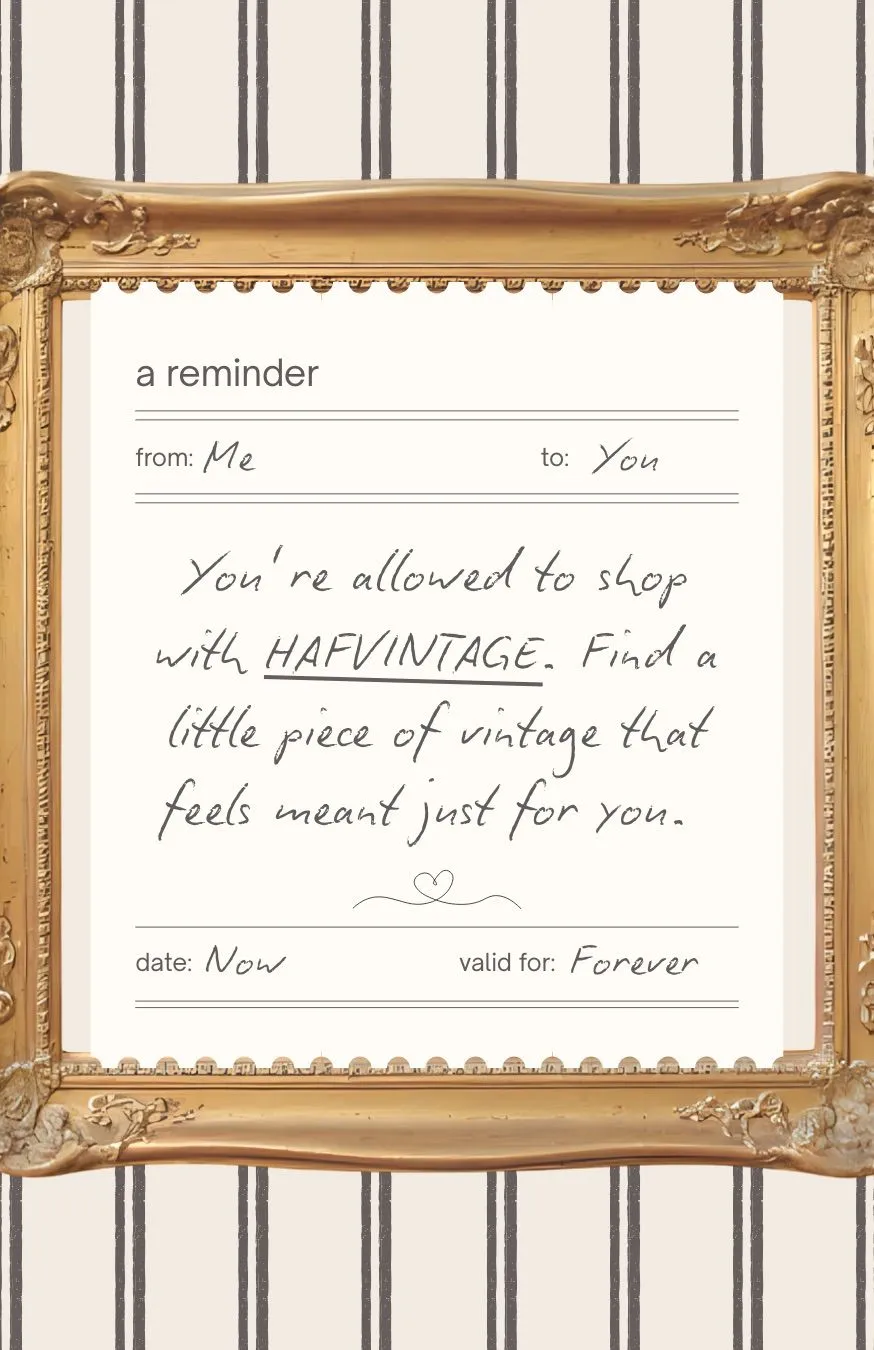 a reminder
from: Me to: You
You're allowed to shop
with HAFVINTAGE. Find a
little piece of vintage that
feels meant just for you.
date: Now valid for: Forever